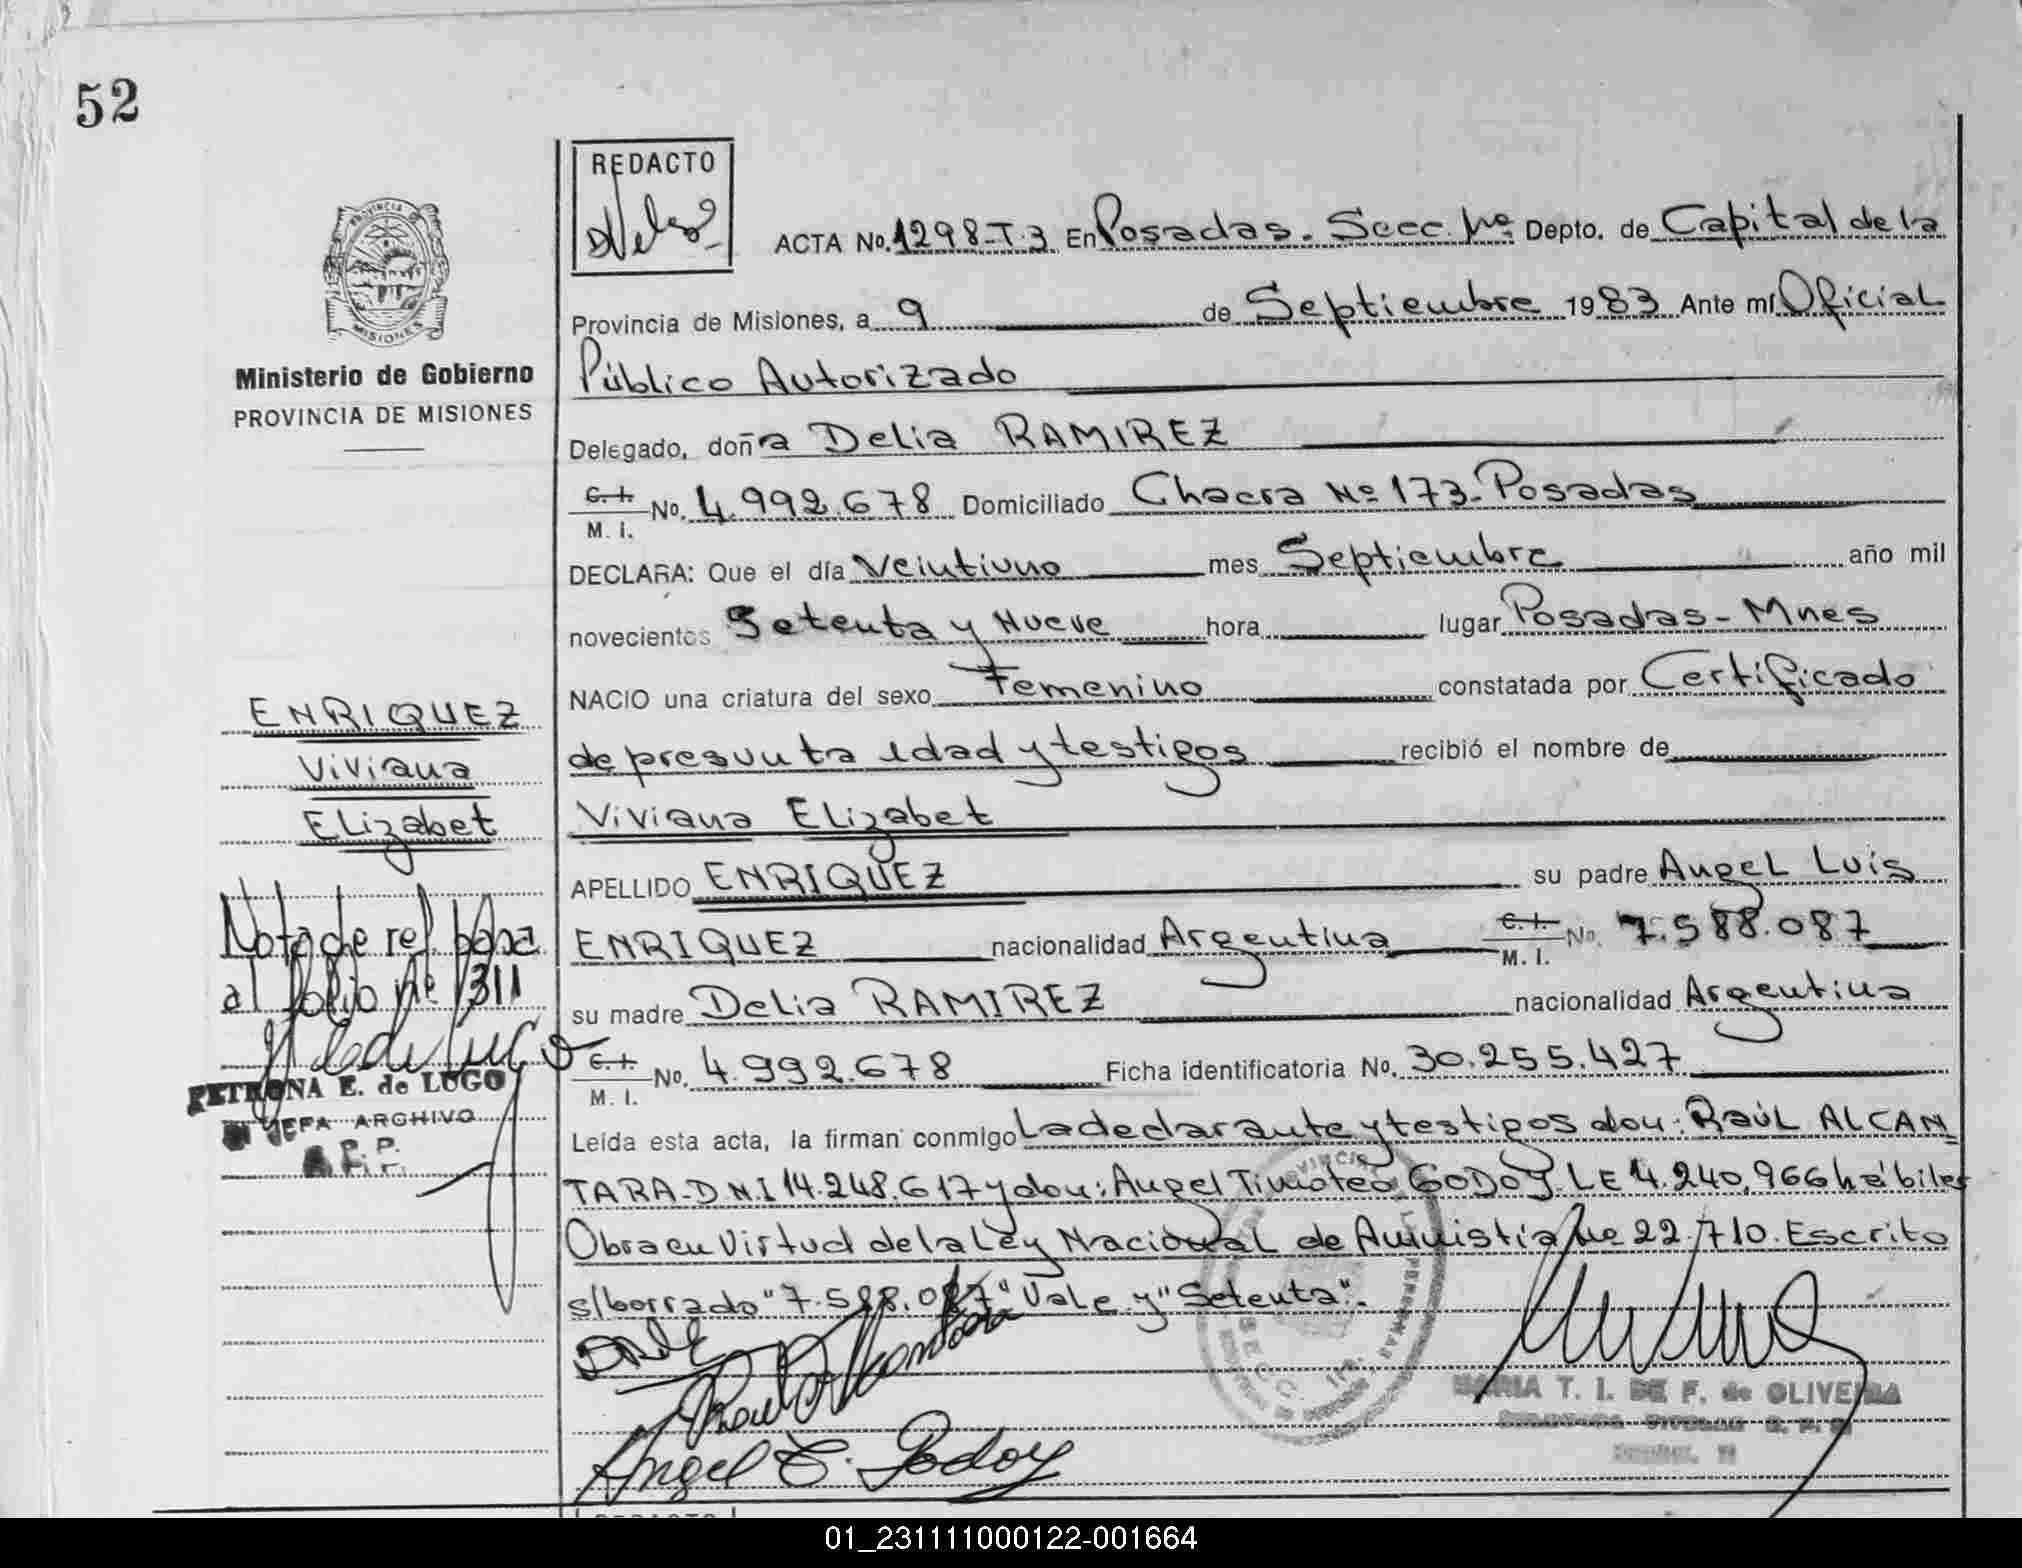 52
REDACTO
ACTA No. 1298-T.3 En Posadas. Secc. 1ra Depto. de Capital de la
Provincia de Misiones, a 9 de Septiembre 1983 Ante mí Oficial
Público Autorizado
Delegado, doña Delia RAMIREZ
C. I.
M. I. No. 4.992.678 Domiciliado Chacra Nº 173-Posadas
DECLARA: Que el día Veintiuno mes Septiembre año mil
novecientos Setenta y Nueve hora lugar Posadas-Mnes
NACIO una criatura del sexo Femenino constatada por Certificado
de presunta edad y testigos recibió el nombre de
Viviana Elizabet
APELLIDO ENRIQUEZ su padre Angel Luis
ENRIQUEZ nacionalidad Argentina C. I.
M. I. No. 7.588.087
su madre Delia RAMIREZ nacionalidad Argentina
C. I.
M. I. No. 4.992.678 Ficha identificatoria No. 30.255.427
Leída esta acta, la firman conmigo La declarante y testigos don: Raúl ALCAN
TARA-D.N.I 14.248.617 y don: Angel Timoteo GODOY. LE 4.240.966 hábiles
Obra en virtud de la Ley Nacional de Amnistia Nº 22.710. Escrito
s/borrado "7.588.087" Vale y "Setenta".
Angel T. Godoy
MARIA T. I. DE F. de OLIVEIRA
PROVINCIA DE MISIONES
Ministerio de Gobierno
PROVINCIA DE MISIONES
ENRIQUEZ
Viviana
Elizabet
Nota de ref. pasa
al folio Nº 311
PETRONA E. de LUGO
JEFA ARCHIVO
R. P. P.
REDACTO
01_231111000122-001664